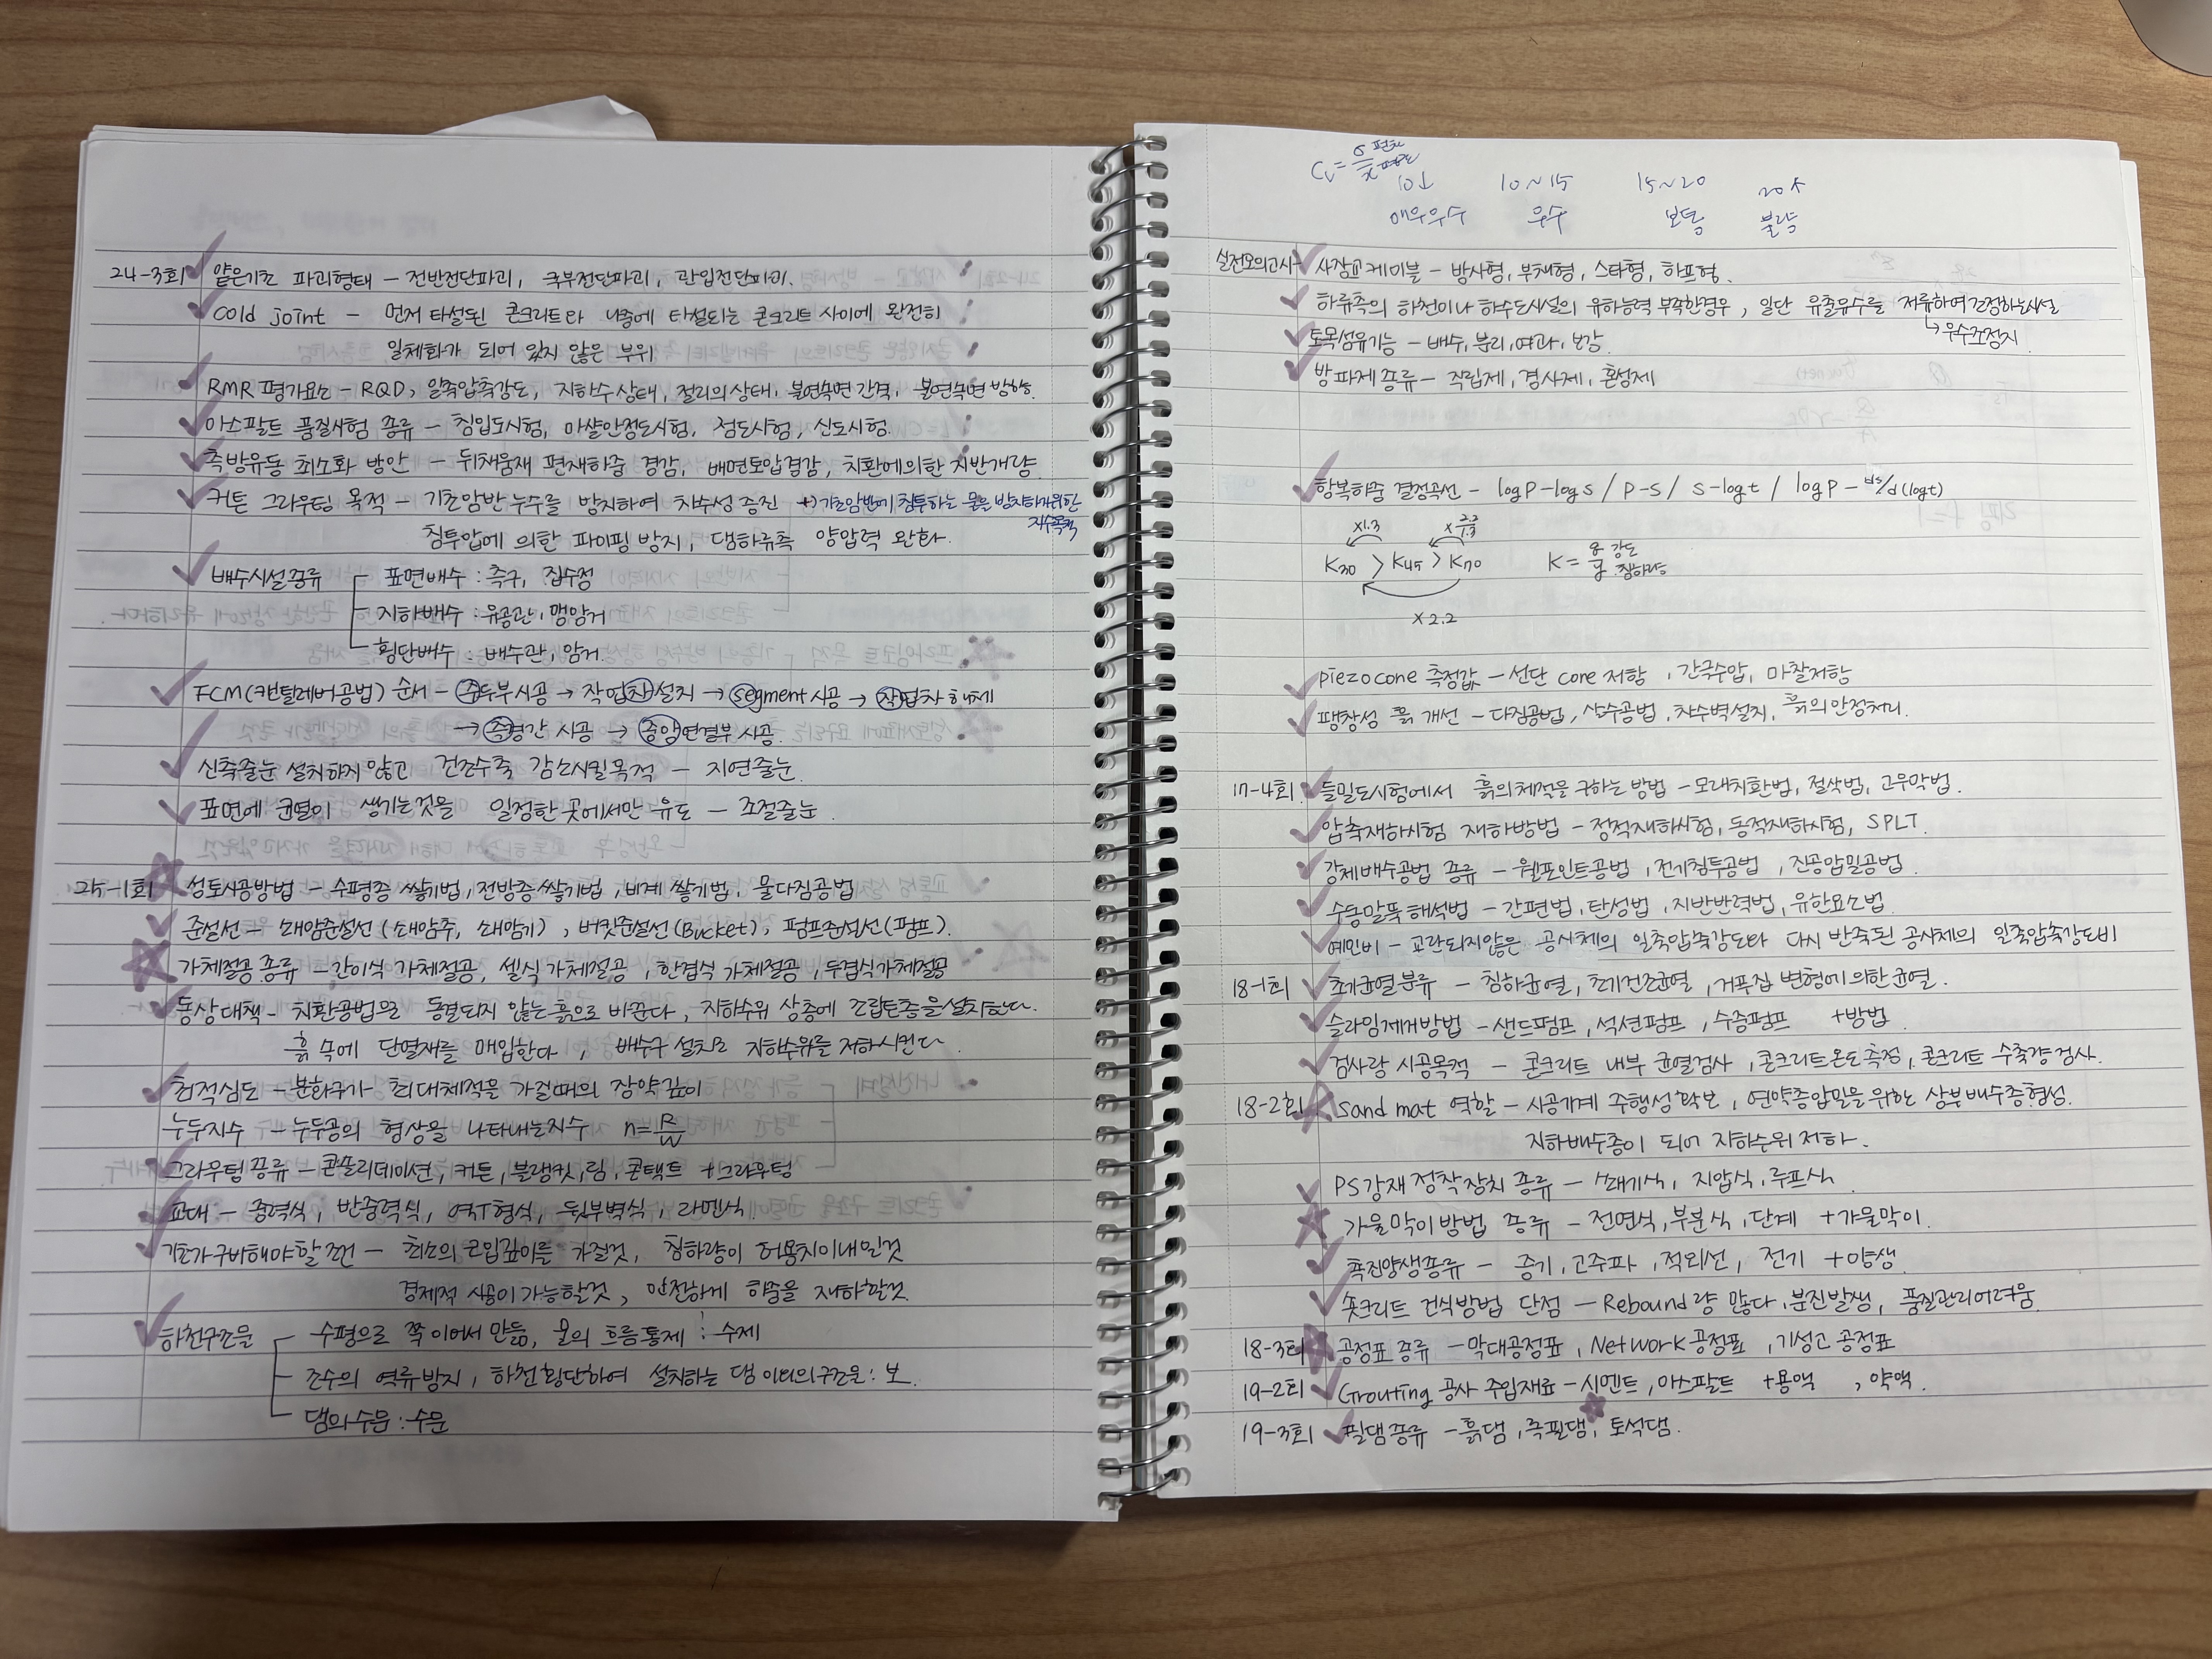 24-3회 얕은기초 파괴형태 - 전반전단파괴, 국부전단파괴, 관입전단파괴.
cold joint - 먼저 타설된 콘크리트와 나중에 타설되는 콘크리트 사이에 완전히
일체화가 되어 있지 않은 부위
RMR 평가요소 - RQD, 일축압축강도, 지하수상태, 절리의상태, 불연속면 간격, 불연속면 방향.
아스팔트 품질시험 종류 - 침입도시험, 마샬안정도시험, 점도시험, 신도시험.
측방유동 최소화 방안 - 뒤채움재 편재하중 경감, 배면토압경감, 치환에의한 지반개량.
커튼 그라우팅 목적 - 기초암반 누수를 방지하여 차수성 증진 +) 기초암반에 침투하는 물을 방지하기위한
지수목적
침투압에 의한 파이핑 방지, 댐하류측 양압력 완화.
배수시설종류 표면배수 : 측구, 집수정
지하배수 : 유공관, 맹암거
횡단배수 : 배수관, 암거.
FCM(캔틸레버공법) 순서 - 주두부시공 → 작업차설치 → segment 시공 → 작업차 해체
→ 측경간 시공 → 중앙연결부 시공.
신축줄눈 설치하지 않고 건조수축 감소시킬목적 - 지연줄눈.
표면에 균열이 생기는것을 일정한 곳에서만 유도 - 조절줄눈
25-1회 성토시공방법 - 수평층쌓기법, 전방층쌓기법, 비계쌓기법, 물다짐공법
준설선 - 쇄암준설선(쇄암추, 쇄암기), 버킷준설선(Bucket), 펌프준설선(펌프).
가체절공 종류 - 간이식 가체절공, 셀식 가체절공, 한겹식 가체절공, 두겹식가체절공
동상대책 - 치환공법으로 동결되지 않는 흙으로 바꾼다, 지하수위 상층에 조립토층을설치한다.
흙 속에 단열재를 매입한다, 배수구 설치로 지하수위를 저하시킨다.
최적심도 - 분화구가 최대체적을 가질때의 장약깊이
누두지수 - 누두공의 형상을 나타내는지수 n=R/W
그라우팅 종류 - 콘솔리데이션, 커튼, 블랭킷, 림, 콘택트 +그라우팅
교대 - 중력식, 반중력식, 역T형식, 뒷부벽식, 라멘식.
기초가구비해야할 조건 - 최소의 근입깊이를 가질것, 침하량이 허용치이내일것
경제적 시공이 가능할것, 안전하게 하중을 재하할것.
하천구조물 수평으로 쭉 이어서 만듦, 물의 흐름통제 : 수제
조수의 역류방지, 하천횡단하여 설치하는 댐 이외의구조물 : 보.
댐의수문 : 수문
Cv = σ 편차 / x̄ 평균
10↓ 10~15 15~20 20↑
매우우수 우수 보통 불량
실전모의고사 사장교케이블 - 방사형, 부채형, 스타형, 하프형.
하류측의 하천이나 하수도시설의 유하능력 부족한경우, 일단 유출유수를 저류하여 조정하는시설
↳ 우수조정지
토목섬유기능 - 배수, 분리, 여과, 보강.
방파제 종류 - 직립제, 경사제, 혼성제
항복하중 결정곡선 - logP-logS / P-S / S-logt / logP - ds/d(logt)
×1.3 ×2.2/1.3
K30 > K45 > K70 K = q 강도 / y 침하량
×2.2
piezocone 측정값 - 선단 core 저항, 간극수압, 마찰저항
팽창성 흙 개선 - 다짐공법, 살수공법, 차수벽설치, 흙의안정처리.
17-4회 들밀도시험에서 흙의체적을 구하는 방법 - 모래치환법, 절삭법, 고무막법.
압축재하시험 재하방법 - 정적재하시험, 동적재하시험, SPLT.
강제배수공법 종류 - 웰포인트공법, 전기침투공법, 진공압밀공법.
수동말뚝 해석법 - 간편법, 탄성법, 지반반력법, 유한요소법.
예민비 - 교란되지않은 공시체의 일축압축강도와 다시 반죽된 공시체의 일축압축강도비
18-1회 초기균열분류 - 침하균열, 초기건조균열, 거푸집 변형에의한균열.
슬라임제거방법 - 샌드펌프, 석션펌프, 수중펌프 +방법
검사랑 시공목적 - 콘크리트 내부 균열검사, 콘크리트온도측정, 콘크리트 수축량검사.
18-2회 Sand mat 역할 - 시공기계 주행성 확보, 연약층압밀을 위한 상부배수층형성.
지하배수층이 되어 지하수위 저하.
PS강재 정착장치 종류 - 쐐기식, 지압식, 루프식
가물막이방법 종류 - 전면식, 부분식, 단계 +가물막이.
촉진양생종류 - 증기, 고주파, 적외선, 전기 +양생
숏크리트 건식방법 단점 - Rebound량 많다, 분진발생, 품질관리어려움
18-3회 공정표 종류 - 막대공정표, Network 공정표, 기성고 공정표
19-2회 Grouting 공사 주입재료 - 시멘트, 아스팔트 +용액, 약액.
19-3회 필댐종류 - 흙댐, 록필댐, 토석댐.